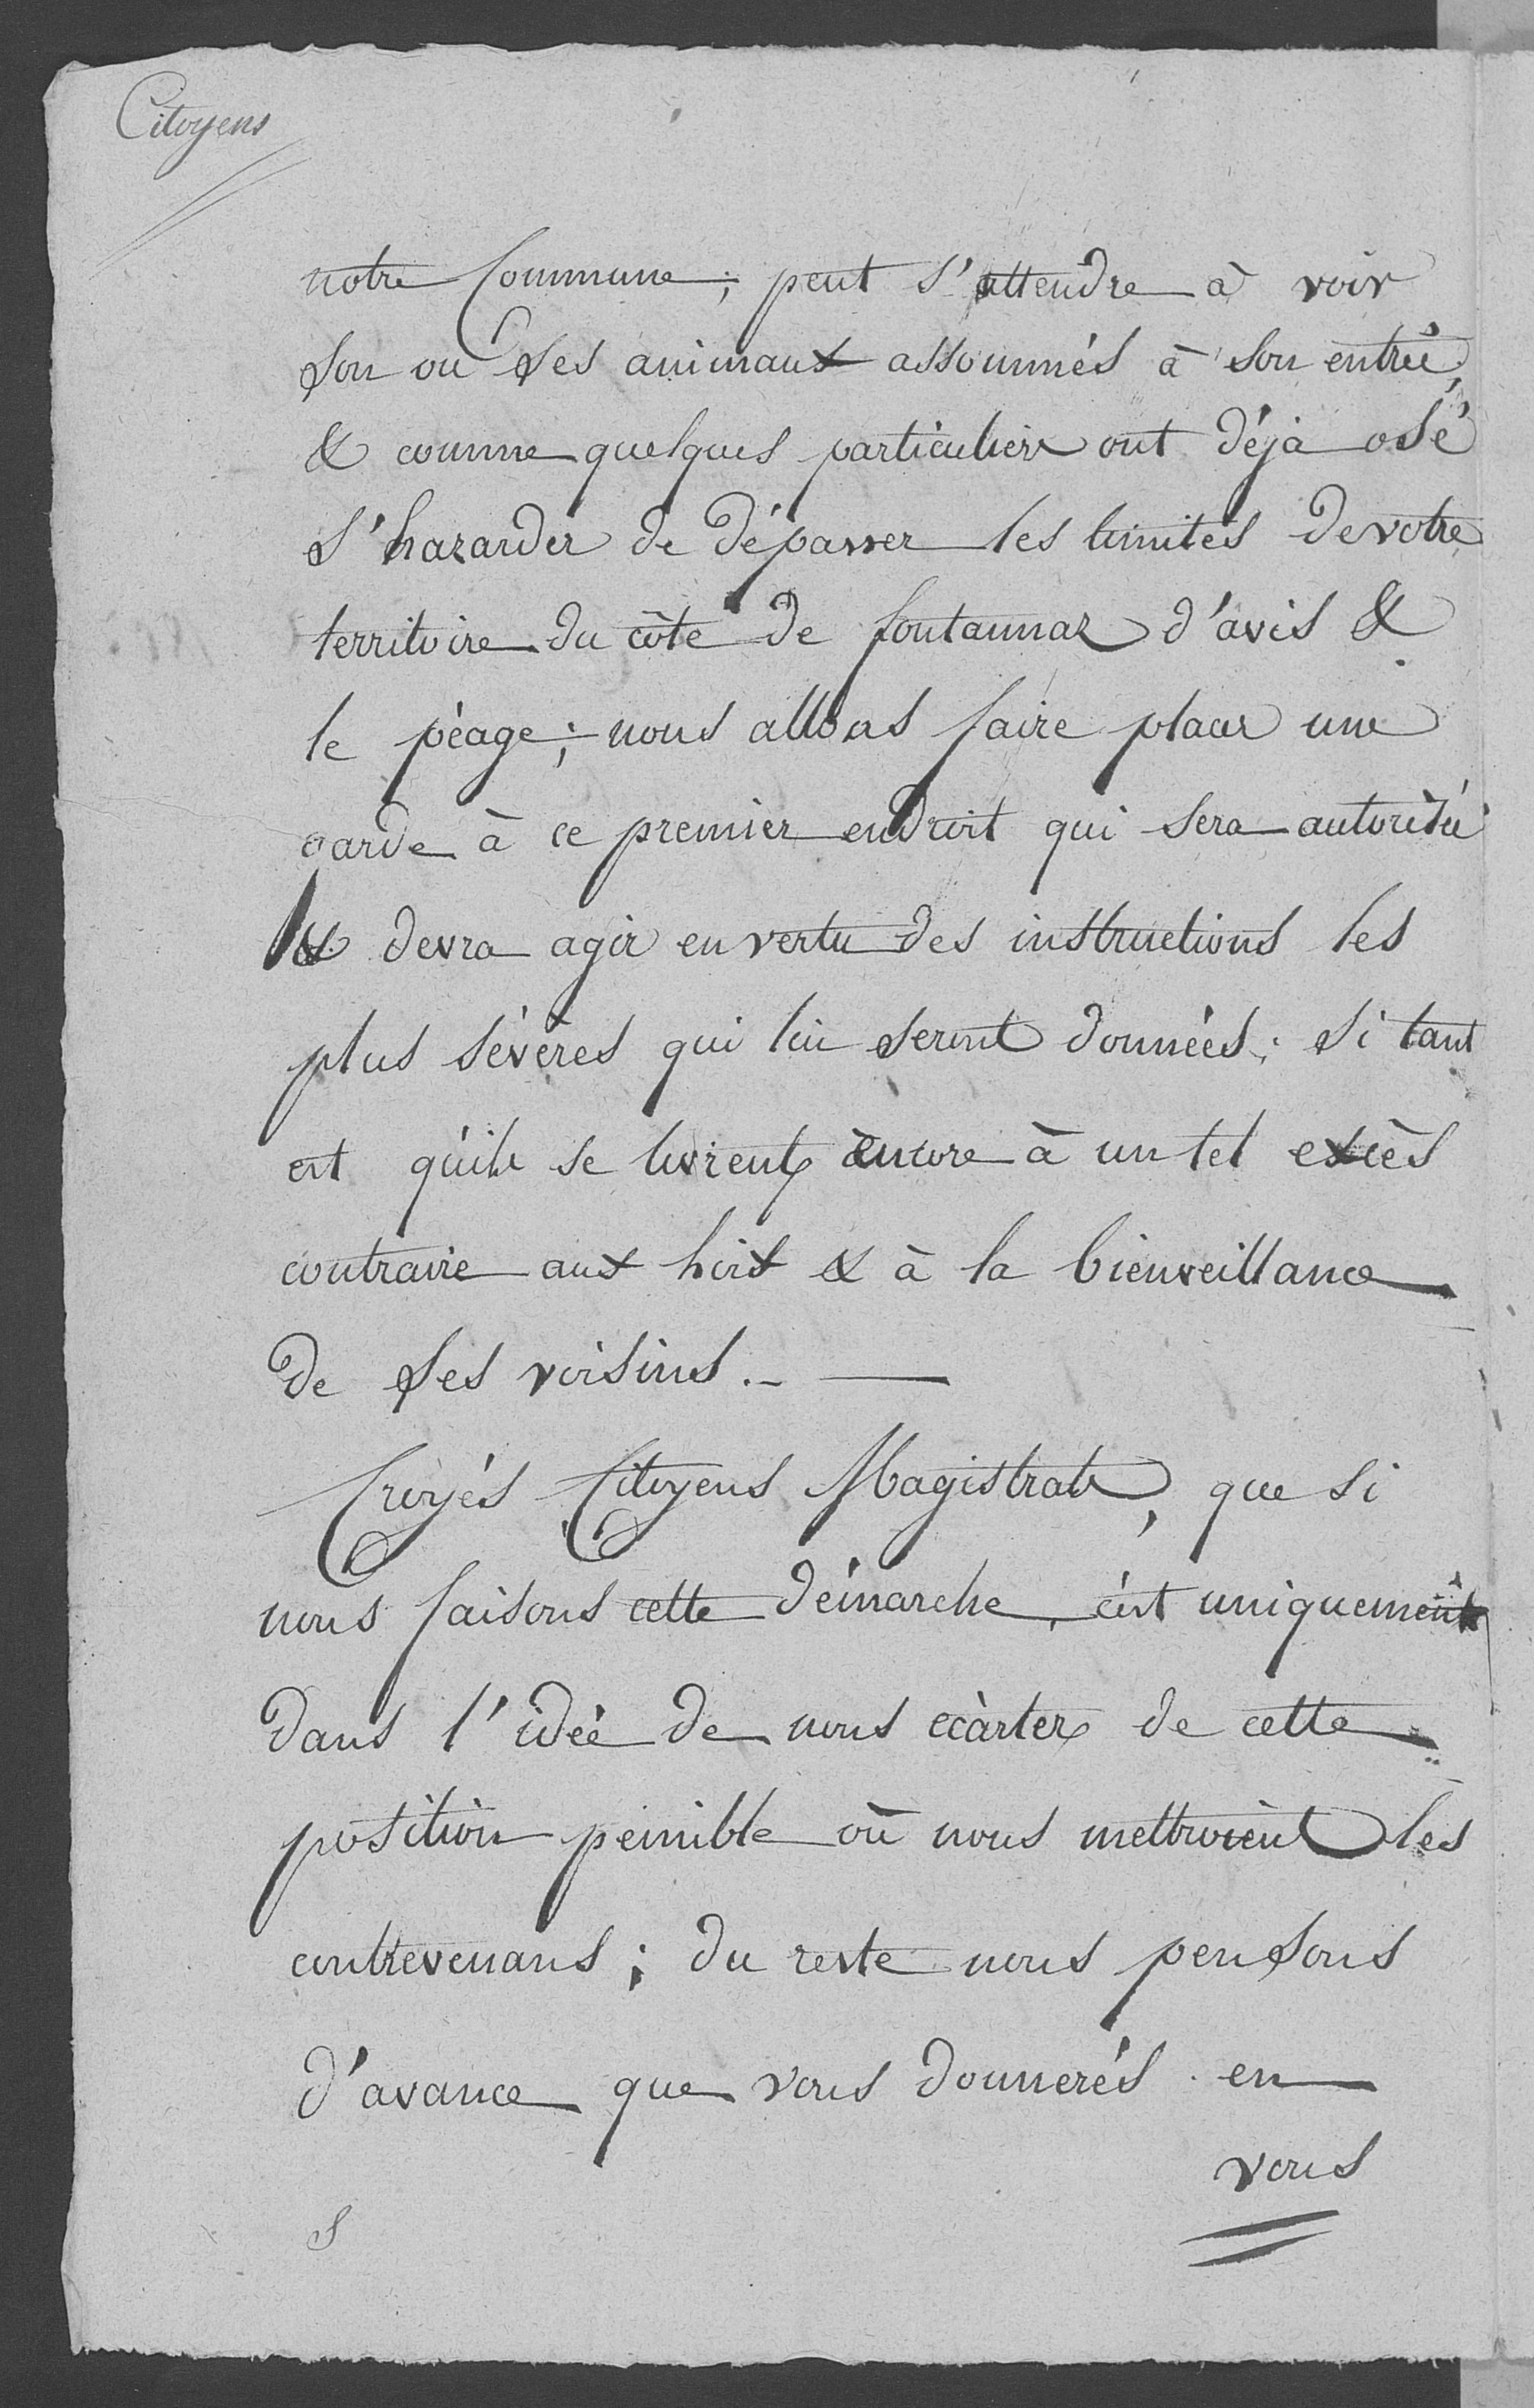 Citoyens
notre Commune; peut s'attendre à voir
son ou ses animaux assommés à son entrée,
& comme quelques particuliers ont déja osé
s'hazarder de dépasser les limites de votre
territoire du côté de fontaunaz d'avis &
le péage; nous allons faire placer une
garde à ce premier endroit qui sera autorisée
& devra agir en vertu des instructions les
plus sévères qui lui seront données; si tant
est qu'ils se livrent encore à un tel excès
contraire aux loix & à la bienveillance
de ses voisins. —
Croyés Citoyens Magistrats, que si
nous faisons cette démarche, c'est uniquement
dans l'idée de nous écarter de cette
position peinible où nous mettroient les
contrevenans; du reste nous pensons
d'avance que vous donnerés en
vous